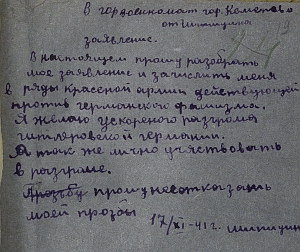 В горвоенкомат гор. Кемерово
от Шипицина
заявление.
В настоящем прошу разобрать
мое заявление и зачислить меня
в ряды красной армии действующей
против германского фашизма.
Я желаю ускореного разгрома
гитлеровской германии.
А так же лично участвовать
в разгроме.
прошу неотказать
моей прозбы
17/XI-41 г. Шипицин